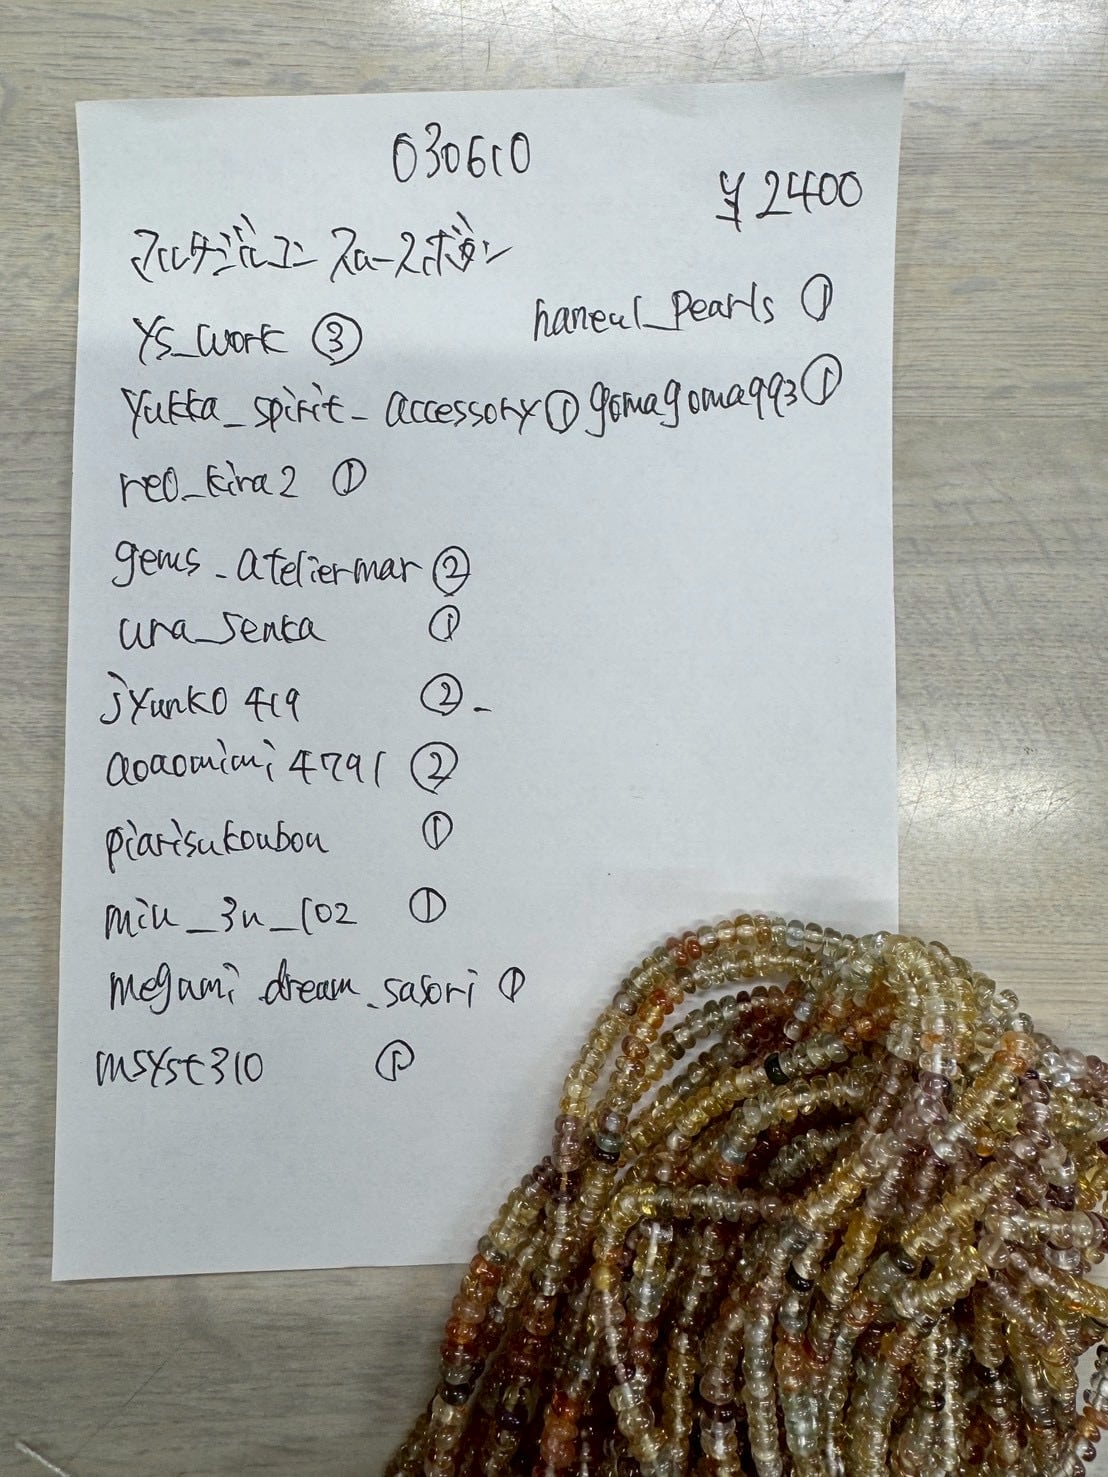 030610
¥2400
マルチジルコン スムースボタン
ys_work ③
haneul_pearls ①
yukka_spirit_accessory ① gomagoma993 ①
reo_kira2 ①
gems_ateliermar ②
ura_senka ①
jyunko419 ②
aoaomimi4791 ②
piarisukoubou ①
miu_3u_102 ①
megami_dream_sasori ①
msyst310 ①